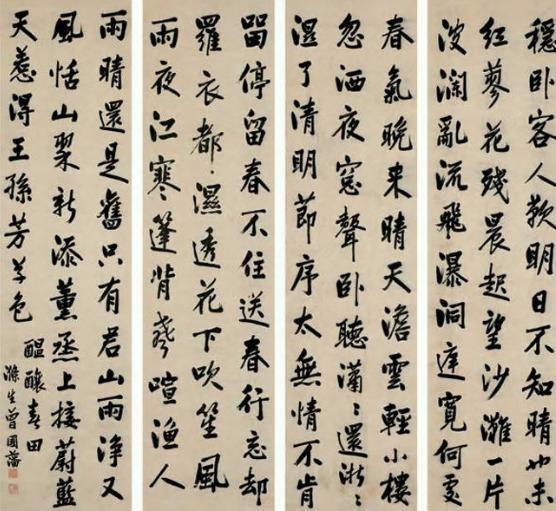 穩卧客人歌明日不知晴也未
紅蓼花殘晨起望沙灘一片
波瀾亂流飛瀑洞庭寬何處
春氣晚來晴天澹雲輕小樓
忽洒夜窓聲卧聽瀟〻還淅〻
濕了清明節序太無情不肯
畱停留春不住送春行忘却
羅衣都濕透花下吹笙風
雨夜江寒篷背聲喧漁人
雨晴還是舊只有君山雨淨又
風恬山翠新添薰烝上接蔚藍
天惹得王孫芳草色
醞釀春田
滌生曾國藩